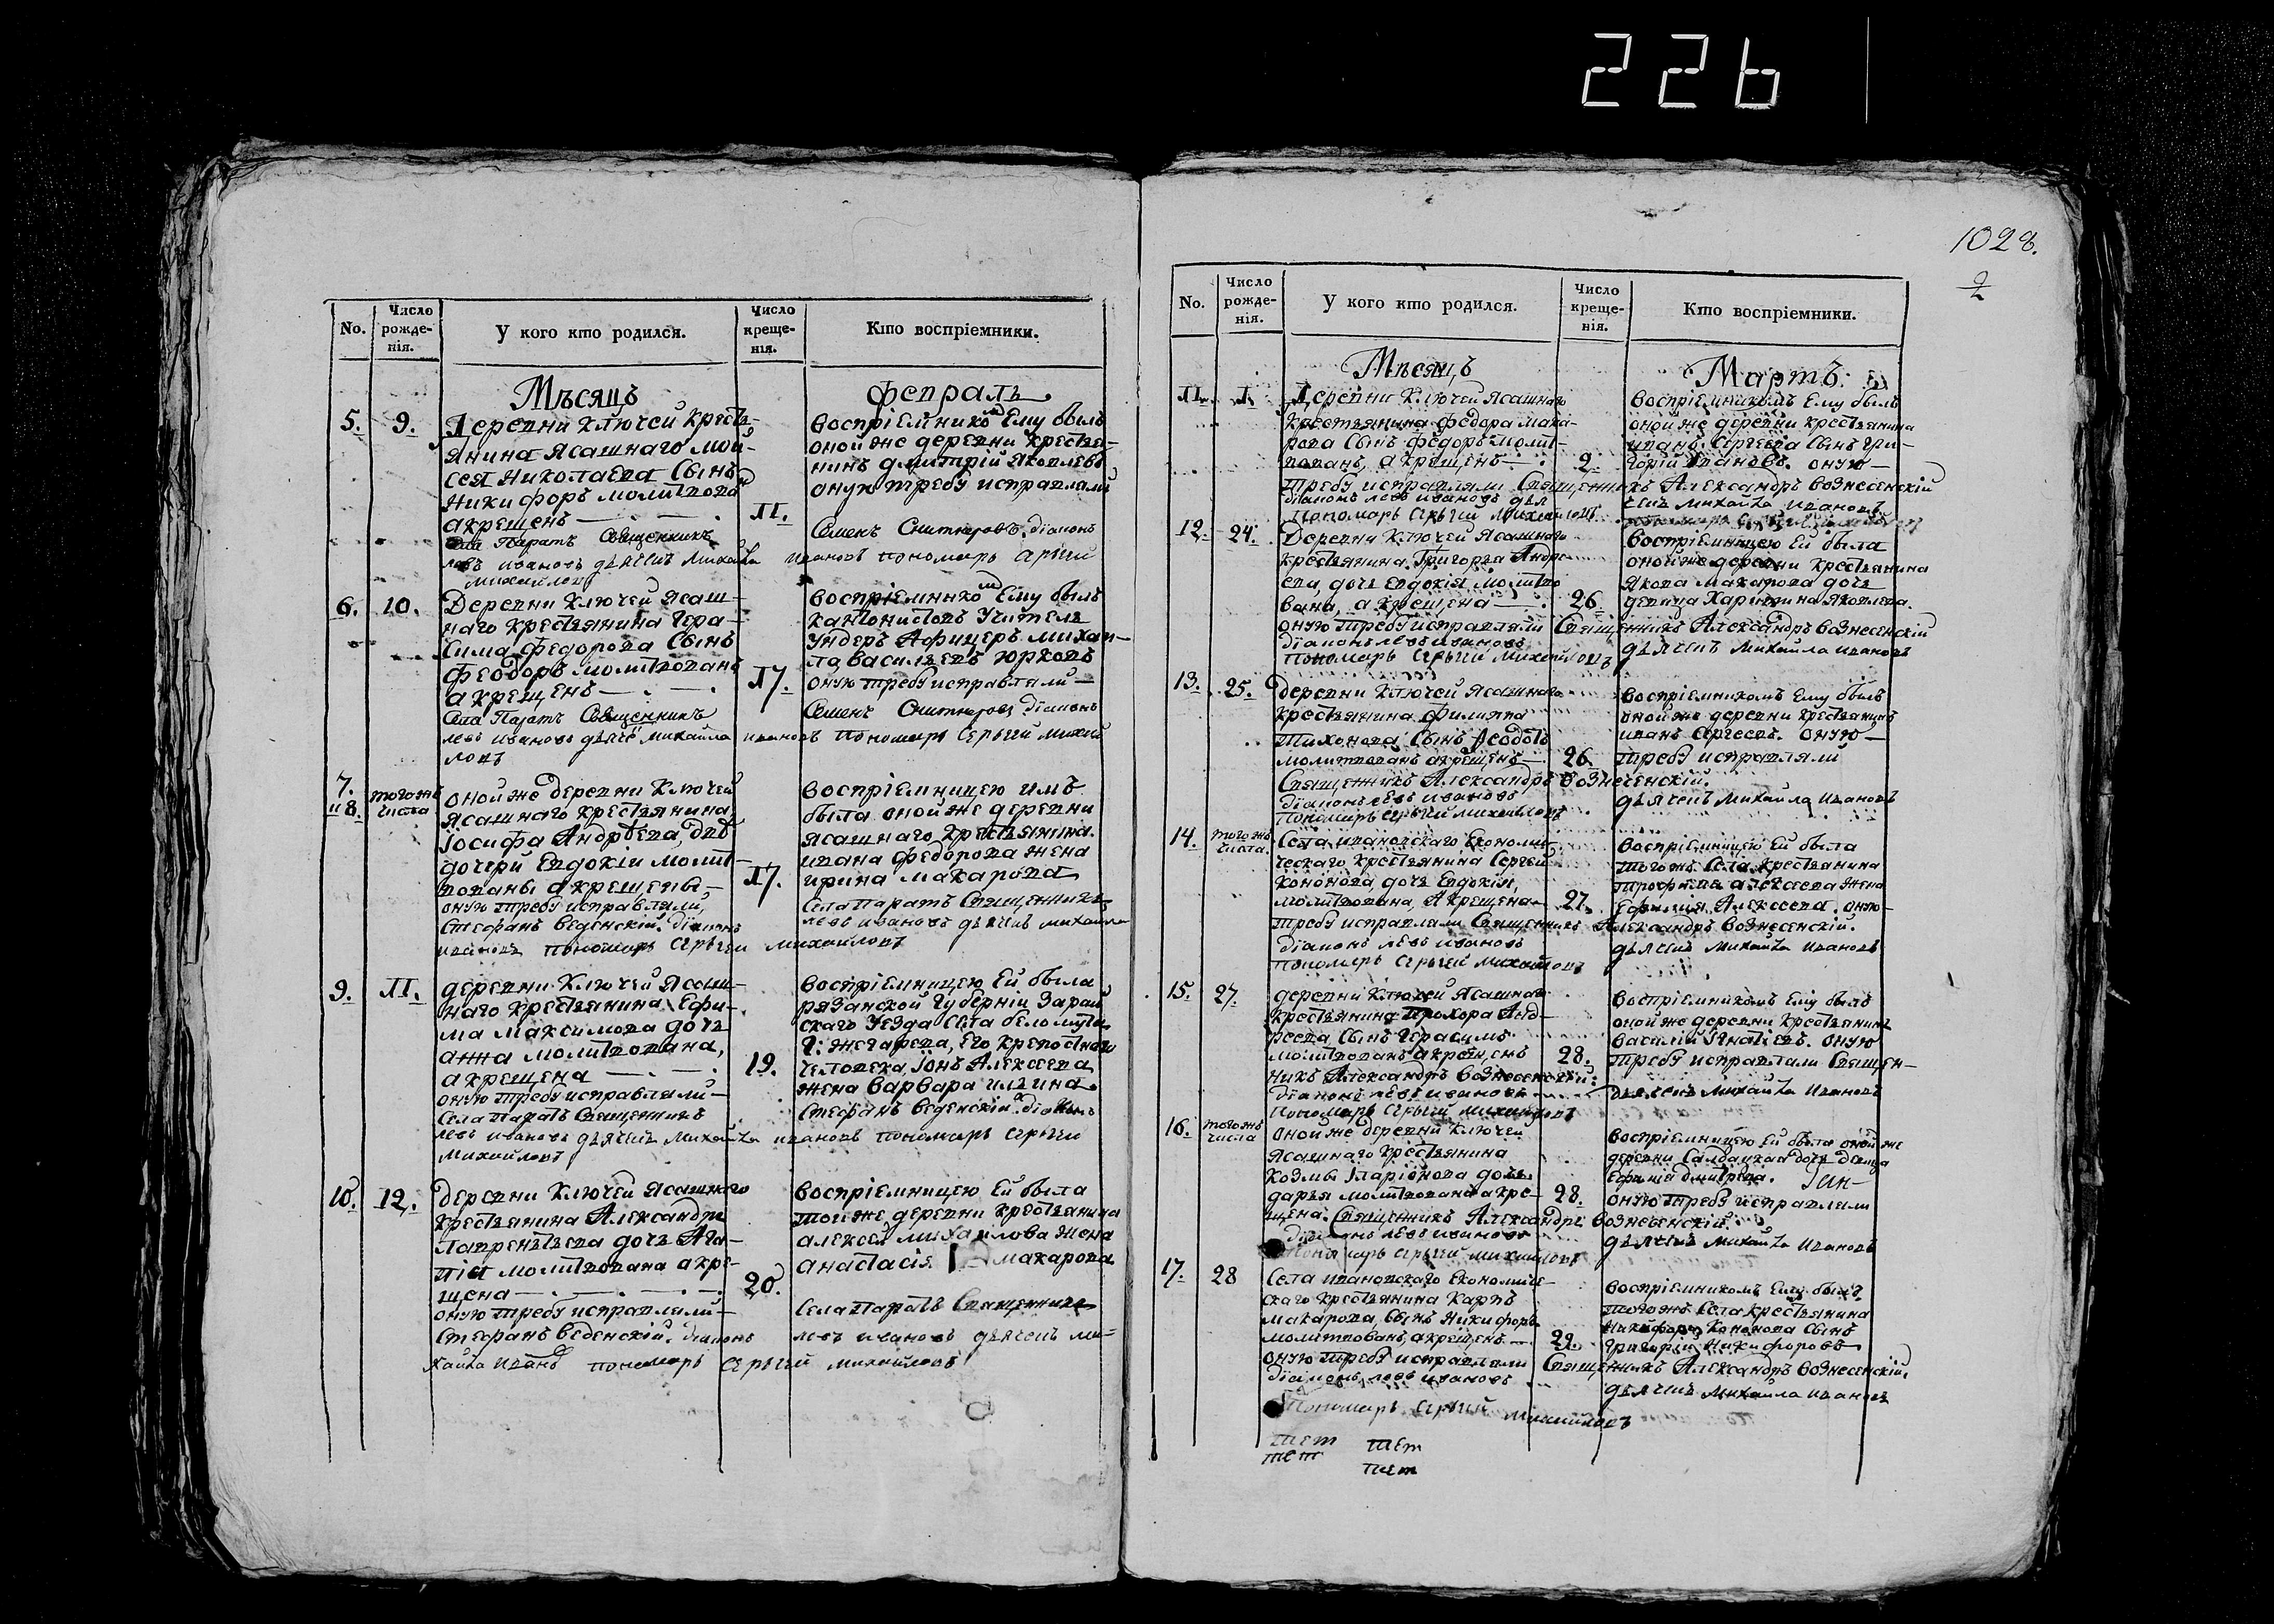 226
1028.
2
No.
Число рожде-нія.
У кого кто родился.
Число креще-нія.
Кто воспріемники.
Мѣсяцъ
февраль
5.
9.
Деревни Ключей Кресть-
янина Ясашнаго Мои-
сея Николаева Сынъ
Никифоръ молитвованъ
а крещенъ
11.
Воспріемникомъ Ему былъ
оной же деревни Крестья-
нинъ Дмитрій Яковлевъ
оную требу исправляли
Села Паратъ Священникъ
Семенъ діаконъ
левъ ивановъ дьячекъ Михайла ивановъ пономарь Сергій
михайловъ
6.
10.
Деревни Ключей Ясаш-
наго Крестьянина Гера-
сима Федорова Сынъ
Феодоръ молитвованъ
а крещенъ
17.
Воспріемникомъ Ему былъ
кантонистовъ Учитель
Ундеръ Афицеръ михаи-
ла васильевъ юрковъ
оную требу исправляли
Села Паратъ Священникъ
Семенъ діаконъ
левъ ивановъ дьячекъ михайла ивановъ пономарь Сергій михай
ловъ
7. и 8.
того жъ числа
оной же деревни Ключей
Ясашнаго Крестьянина
Іосифа Андрѣева, двѣ
дочери Евдокіи молит-
вованы а крещены
17.
воспріемницею имъ
была оной же деревни
ясашнаго Крестьянина
ивана Федорова жена
ирина макарова
оную требу исправляли,
Села Паратъ Священникъ
Стефанъ Веденскій. діаконъ левъ ивановъ дьячекъ михаила
ивановъ пономарь Сергій михайловъ
9.
11.
деревни Ключей Ясаш-
наго Крестьянина Ефи-
ма Максимова дочь
анна молитвована,
а крещена
19.
воспріемницею Ей была
рязанской Губерніи Зарай
скаго Уезда Села беломута
Г: жегарева, его крепостнаго
человека, Іонъ Алексеева
жена варвара ильина
оную требу исправляли
Села Паратъ Священникъ
Стефанъ Веденскій діаконъ
левъ ивановъ дьячекъ Михайла ивановъ пономарь Сергій
михайловъ
10.
12.
деревни Ключей Ясашнаго
крестьянина Александра
лаврентьева дочь Ага-
пія молитвована а кре-
щена
20.
воспріемницею Ей была
той же деревни крестьянина
алексея михаилова жена
анастасія макарова
оную требу исправляли
Села Паратъ Священникъ
Стефанъ Веденскій. діаконъ левъ ивановъ дьячекъ ми-
хайла иванъ пономарь Сергій михайловъ
No.
Число рожде-нія.
У кого кто родился.
Число креще-нія.
Кто воспріемники.
Мѣсяцъ
Мартъ.
11.
1.
Деревни Ключей Ясашнаго
Крестьянина федора Мака-
рова Сынъ федоръ молит-
вованъ, а крещенъ
2.
воспріемникомъ Ему былъ
оной же деревни крестьянина
ивана Сергеева Сынъ Гри-
горій ивановъ. оную
требу исправляли Священникъ Александръ Вознесенскій
діаконъ левъ ивановъ дья чекъ Михайла ивановъ
Пономарь Сергій Михайловъ
12.
24.
Деревни Ключей Ясашнаго
крестьянина Григорья Андре
ева, дочь Евдокія молитво
вана, а крещена
26.
воспріемницею Ей была
оной же деревни крестьянина
Якова макарова дочь
девица Харитина Яковлева.
оную требу исправляли Священникъ Александръ Вознесенскій
діаконъ левъ ивановъ
дьячекъ Михайла ивановъ
Пономарь Сергій Михайловъ
13.
25.
деревни Ключей Ясашнаго
крестьянина Филиппа
Тихонова Сынъ Феодотъ
молитвованъ а крещенъ
26.
воспріемникомъ Ему былъ
оной же деревни крестьянинъ
иванъ Сергеевъ. оную
требу исправляли
Священникъ Александръ Вознесенскій.
діаконъ левъ ивановъ
дьячекъ Михайла Ивановъ
Пономарь Сергій Михайловъ
14.
того жъ числа.
Села ивановскаго Економи-
ческаго крестьянина Сергея
Кононова дочь Евдокія,
молитвована, а крещена
27.
воспріемницею Ей была
тогожъ Села крестьянина
трофима алексеева жена
Ефимия Алексеева. оную
требу исправляли Священникъ Александръ Вознесенскій.
діаконъ левъ ивановъ
дьячекъ Михайла ивановъ
Пономарь Сергій Михайловъ
15.
27.
деревни Ключей Ясашнаго
крестьянина Прохора Анд-
реева, Сынъ Герасимъ
молитвованъ а крещенъ
28.
воспріемникомъ Ему былъ
оной же деревни крестьянинъ
василій Игнатьевъ. оную
требу исправляли Священ-
никъ Александръ Вознесенскій:
діаконъ левъ ивановъ
дьячекъ Михайла Ивановъ
Пономарь Сергій Михайловъ
16.
того жъ числа
оной же деревни Ключей
Ясашнаго крестьянина
Козмы Іларіонова дочь
дарья молитвована а кре-
щена.
28.
воспріемницею Ей была оной же
деревни Салдацкая дочь девица
Ефимія дмитріева.
оную требу исправляли
Священникъ Александръ Вознесенскій.
діаконъ левъ ивановъ
дьячекъ Михайла Ивановъ
Пономарь Сергій михайловъ
17.
28
Села ивановскаго Економиче-
скаго крестьянина Карпа
макарова, Сынъ Никифоръ
молитвованъ, а крещенъ
29.
воспріемникомъ Ему былъ
тогожъ Села крестьянина
Никифора Кононова Сынъ
Григорій Никифоровъ
оную требу исправляли Священникъ Александръ Вознесенскій.
діаконъ левъ ивановъ
дьячекъ Михайла ивановъ
Пономарь Сергій Михайловъ